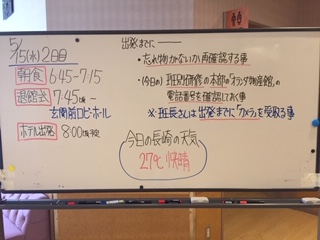 5/15(水) 2日目
朝食 6:45-7:15
退館式 7:45頃〜
玄関前ロビーホール
ホテル出発 8:00頃予定
出発までに――
・忘れ物がないか再確認する事
・(今日の)班別研修の本部の「オランダ物産館」の
電話番号を確認しておく事
※班長さんは出発までに「カメラ」を受取る事
今日の長崎の天気
27℃ 快晴